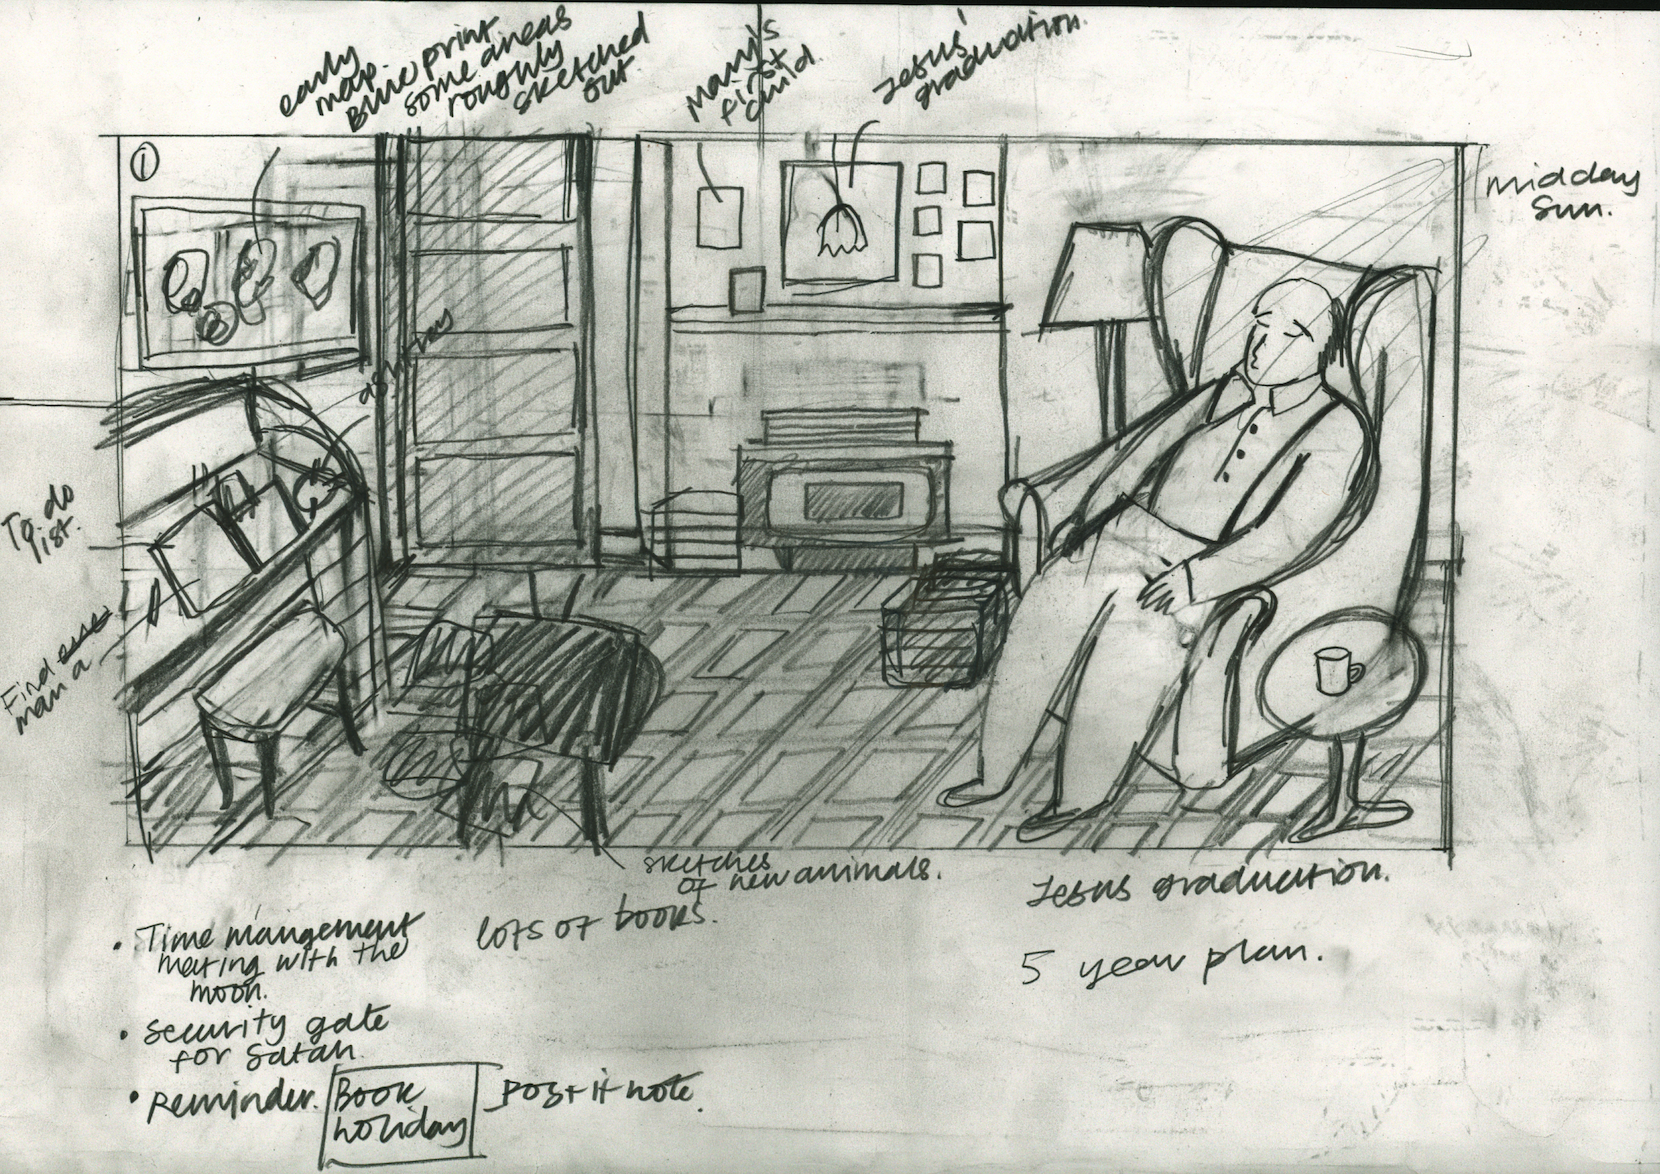 early
map.
Blue print
some areas
roughly
sketched
out.
Mary's
first
child.
Jesus'
graduation.
①
midday
sun.
ashtray
To do
list.
Find
man a
sketches
of new animals.
lots of books.
Jesus graduation.
5 year plan.
• Time mangement
meting with the
moon.
• security gate
for Satan.
• Reminder. Book
holiday
Post it note.